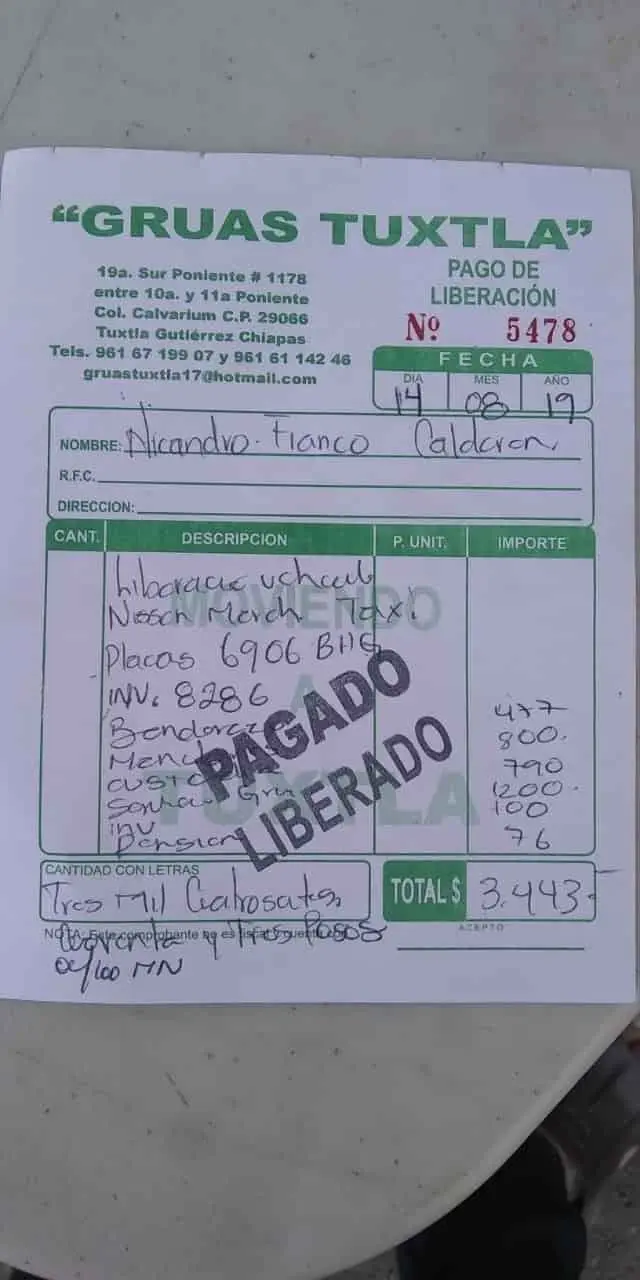 “GRUAS TUXTLA”
19a. Sur Poniente # 1178
entre 10a. y 11a Poniente
Col. Calvarium C.P. 29066
Tuxtla Gutiérrez Chiapas
Tels. 961 67 199 07 y 961 61 142 46
gruastuxtla17@hotmail.com
PAGO DE
LIBERACIÓN
Nº 5478
FECHA
DIA MES AÑO
14 08 19
NOMBRE: Nicandro Franco Calderon
R.F.C.
DIRECCION:
CANT. DESCRIPCION P. UNIT. IMPORTE
MOVIENDO
A
TUXTLA
Nissan March Taxi
Placas 6906 BHG
INV. 8286
477
800.
790
1200.
100
inv
Pension 76
PAGADO
LIBERADO
CANTIDAD CON LETRAS
Tres Mil
TOTAL $ 3.443.-
NOTA: Este comprobante no es fiscal
y Tres Pesos
00/100 MN
ACEPTO